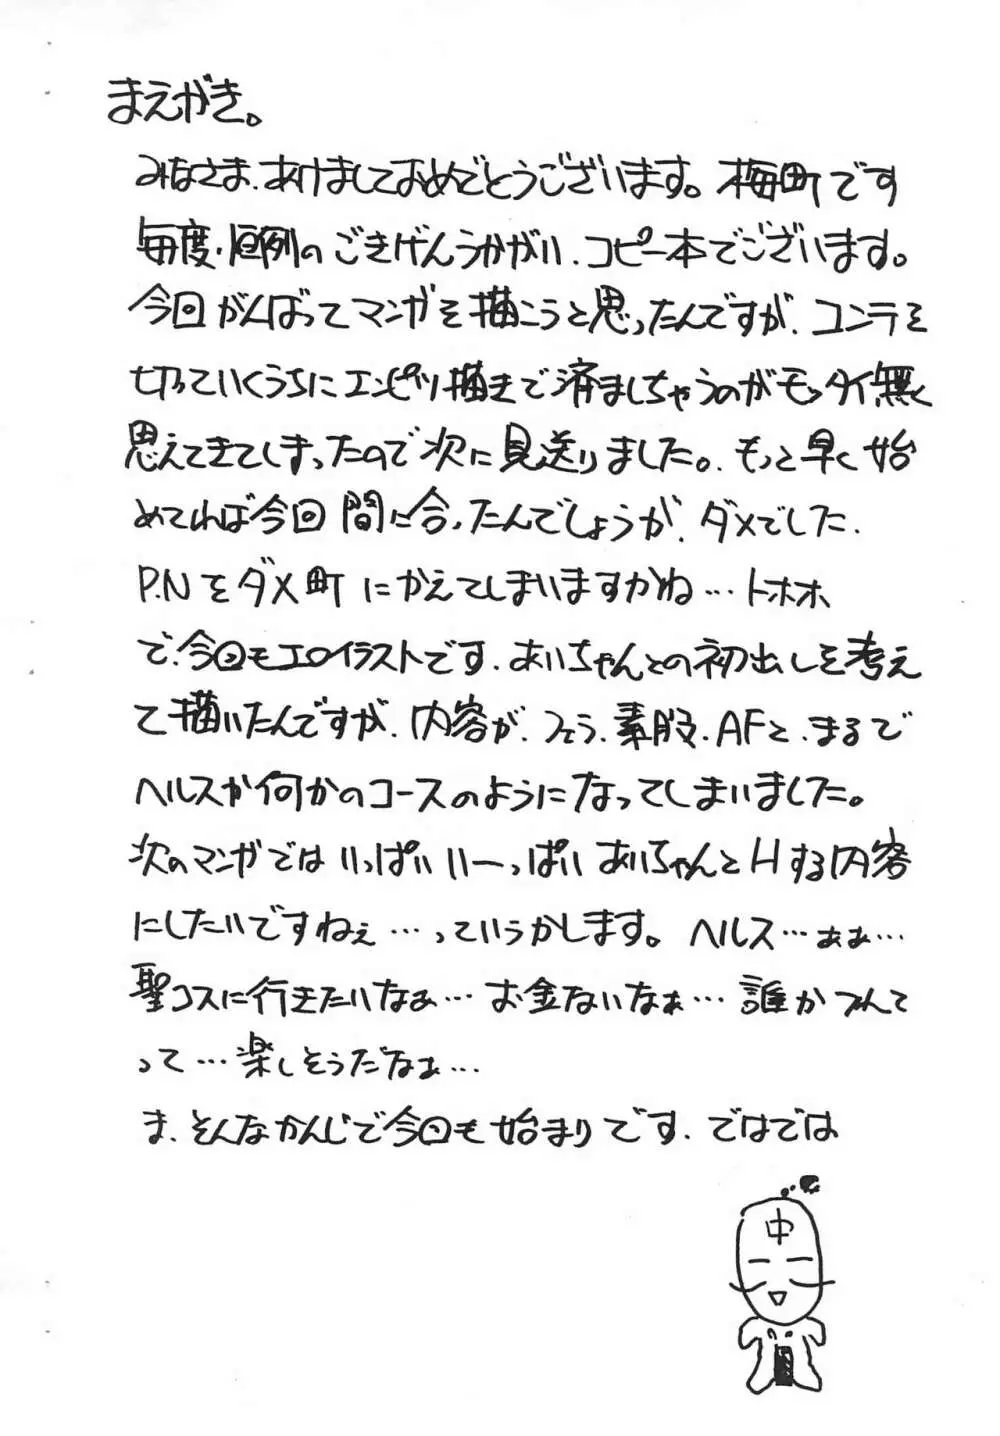 まえがき。
みなさま、あけましておめでとうございます。梅町です
毎度・恒例のごきげんうかがい、コピー本でございます。
今回がんばってマンガを描こうと思ったんですが、コンテを
切っていくうちにエンピツ描きで済ましちゃうのがモッタイ無く
思えてきてしまったので次に見送りました。もっと早く始
めてれば今回間に合ったんでしょうが、ダメでした.
P.Nをダメ町にかえてしまいますかね…トホホ
で、今回もエロイラストです.あいちゃんとの初出しを考え
て描いたんですが、内容が、フェラ、素股、AFと、まるで
ヘルスか何かのコースのようになってしまいました。
次のマンガではいっぱいいーっぱいあいちゃんとHする内容
にしたいですねぇ…っていうかします。ヘルス…ぁぁ…
聖コスに行きたいなぁ…お金ないなぁ…誰かつれて
って…楽しそうだなぁ…
ま、そんなかんじで今回も始まりです.ではでは
中